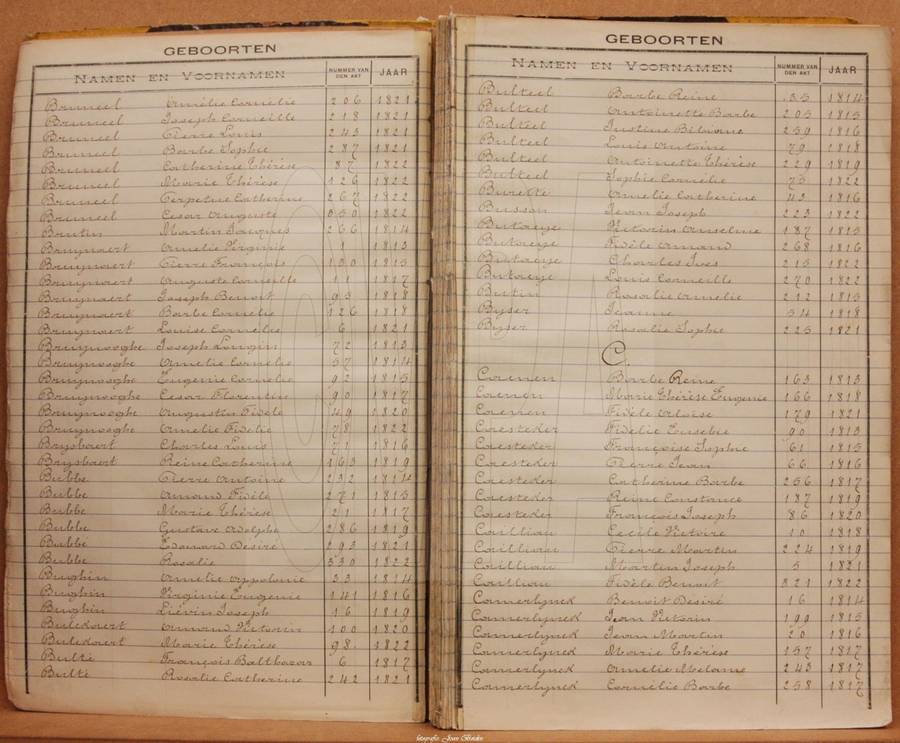 GEBOORTEN
NAMEN EN VOORNAMEN NUMMER VAN DEN AKT JAAR
Bruneel Amélie Cornélie 206 1821
Bruneel Joseph Corneille 218 1821
Bruneel Pierre Louis 243 1821
Bruneel Barbe Sophie 287 1821
Bruneel Catherine Thérèse 87 1822
Bruneel Marie Thérèse 126 1822
Bruneel Perpetue Catherine 267 1822
Bruneel Cesar Auguste 1822
Brutin Martin Jacques 266 1814
Bruynaert Amelie Virginie 1 1813
Bruynaert Pierre François 130 1815
Bruynaert Auguste Corneille 11 1817
Bruynaert Joseph Benoit 93 1818
Bruynaert Barbe Cornelie 126 1818
Bruynaert Louise Cornelie 6 1821
Bruynooghe Joseph Longin 72 1813
Bruynooghe Amelie Cornelie 57 1814
Bruynooghe Eugenie Cornelie 92 1815
Bruynooghe Cesar Florentin 90 1817
Bruynooghe Augustin Fidèle 49 1820
Bruynooghe Amelie Fidelie 78 1822
Brysbaert Charles Louis 71 1816
Brysbaert Reine Catherine 163 1819
Bubbe Pierre Antoine 232 1814
Bubbe Amand Fidèle 271 1815
Bubbe Marie Thérèse 21 1817
Bubbe Gustave Adolphe 286 1819
Bubbe Edouard Desiré 293 1821
Bubbe Rosalie 330 1822
Bughin Amelie Appolonie 33 1814
Bughin Virginie Eugenie 141 1816
Bughin Liévin Joseph 16 1819
Bulckaert Amand Victorin 100 1820
Bulckaert Marie Thérèse 98 1822
Bulté François Balthazar 6 1817
Bulté Rosalie Catherine 242 1821
GEBOORTEN
NAMEN EN VOORNAMEN NUMMER VAN DEN AKT JAAR
Bulteel Barbe Reine 35 1814
Bulteel Antoinette Barbe 205 1815
Bulteel Justine Bibiane 259 1816
Bulteel Louis Antoine 79 1818
Bulteel Antoinette Thérèse 229 1819
Bulteel Sophie Cornelie 75 1822
Burette Amelie Catherine 42 1816
Busson Jean Joseph 223 1822
Butaeye Victorin Anselme 187 1815
Butaeye Fidèle Amand 268 1816
Butaeye Charles Ives 215 1822
Butaeye Louis Corneille 270 1822
Butin Rosalie Amelie 212 1815
Byser Jeanne 54 1818
Byser Rosalie Sophie 225 1821
C
Caenen Barbe Reine 163 1813
Caenen Marie Thérèse Eugenie 166 1818
Caenen Fidèle Aloise 179 1821
Caesteker Fidélie Eusebie 90 1813
Caesteker Françoise Sophie 61 1815
Caesteker Pierre Jean 66 1816
Caesteker Catherine Barbe 256 1817
Caesteker Reine Constance 187 1819
Caesteker François Joseph 86 1820
Cailliau Cecile Victoire 10 1818
Cailliau Pierre Martin 224 1819
Cailliau Martin Joseph 5 1821
Cailliau Fidèle Benoit 321 1822
Camerlynck Benoit Désiré 16 1814
Camerlynck Jean Victorin 199 1815
Camerlynck Jean Martin 20 1816
Camerlynck Marie Thérèse 157 1817
Camerlynck Amelie Melanie 243 1817
Camerlynck Cornélie Barbe 258 1817